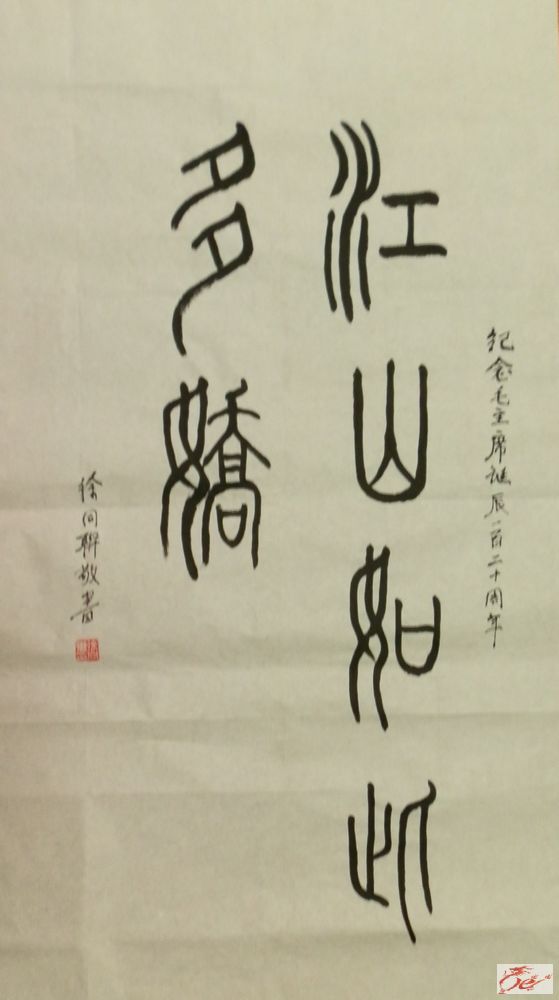 纪念毛主席诞辰一百二十周年
江山如此
多嬌
徐同聯敬書